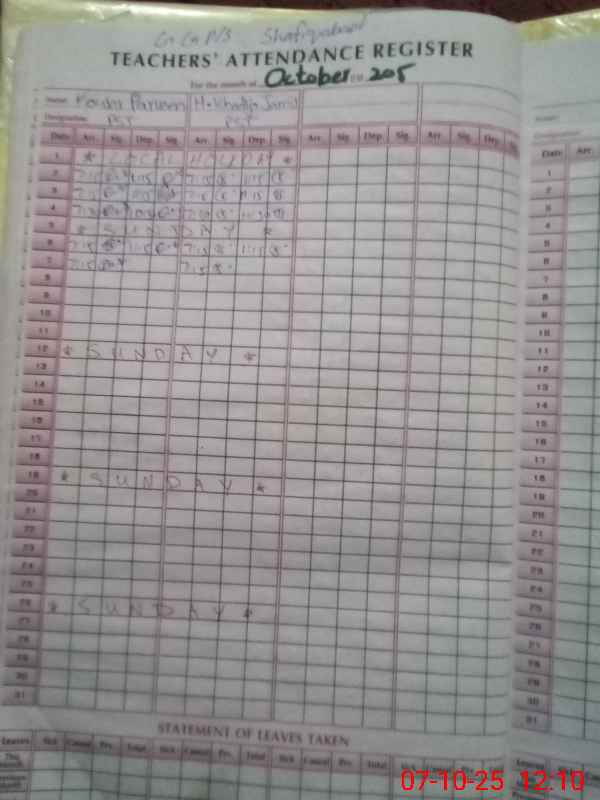 Shafiqabad
TEACHERS' ATTENDANCE REGISTER
For the month of October 205
Name Parveen H-Khadija
Designation PST PST
Date Arr. Sig. Dep. Sig. Arr. Sig. Dep. Sig. Arr. Sig. Dep. Sig. Arr. Sig. Dep. Sig.
1 * LOCAL HOLIDAY *
2 7:15 1:15 7:15 1:15
3 7:15 1:15 7:15 1:15
4 7:15 7:15
5 * SUNDAY *
6 7:15 1:15 7:15 1:15
7 7:15 7:15
8
9
10
11
12 * SUNDAY *
13
14
15
16
17
18
19 * SUNDAY *
20
21
22
23
24
25
26 * SUNDAY *
27
28
29
30
31
STATEMENT OF LEAVES TAKEN
Leaves Sick Casual Prv. Total Sick Casual Prv. Total Sick Casual Prv. Total Sick Casual Prv. Total
This Month
Previous Month
Date Arr.
1
2
3
4
5
6
7
8
9
10
11
12
13
14
15
16
17
18
19
20
21
22
23
24
25
26
27
28
29
30
31
Leaves Sick
07-10-25 12:10